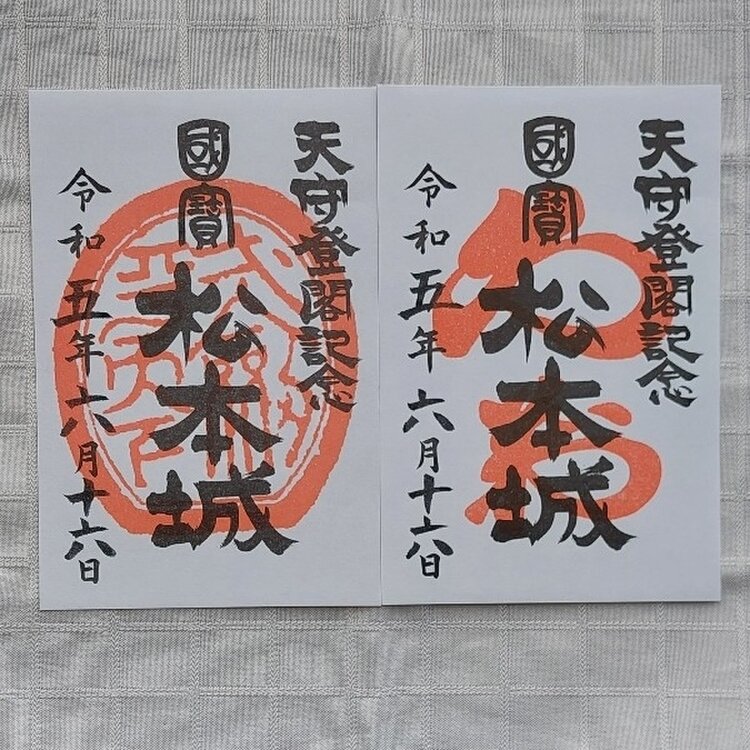 天守登閣記念
國寶
松本城
令和五年六月十六日
天守登閣記念
國寶
松本城
令和五年六月十六日